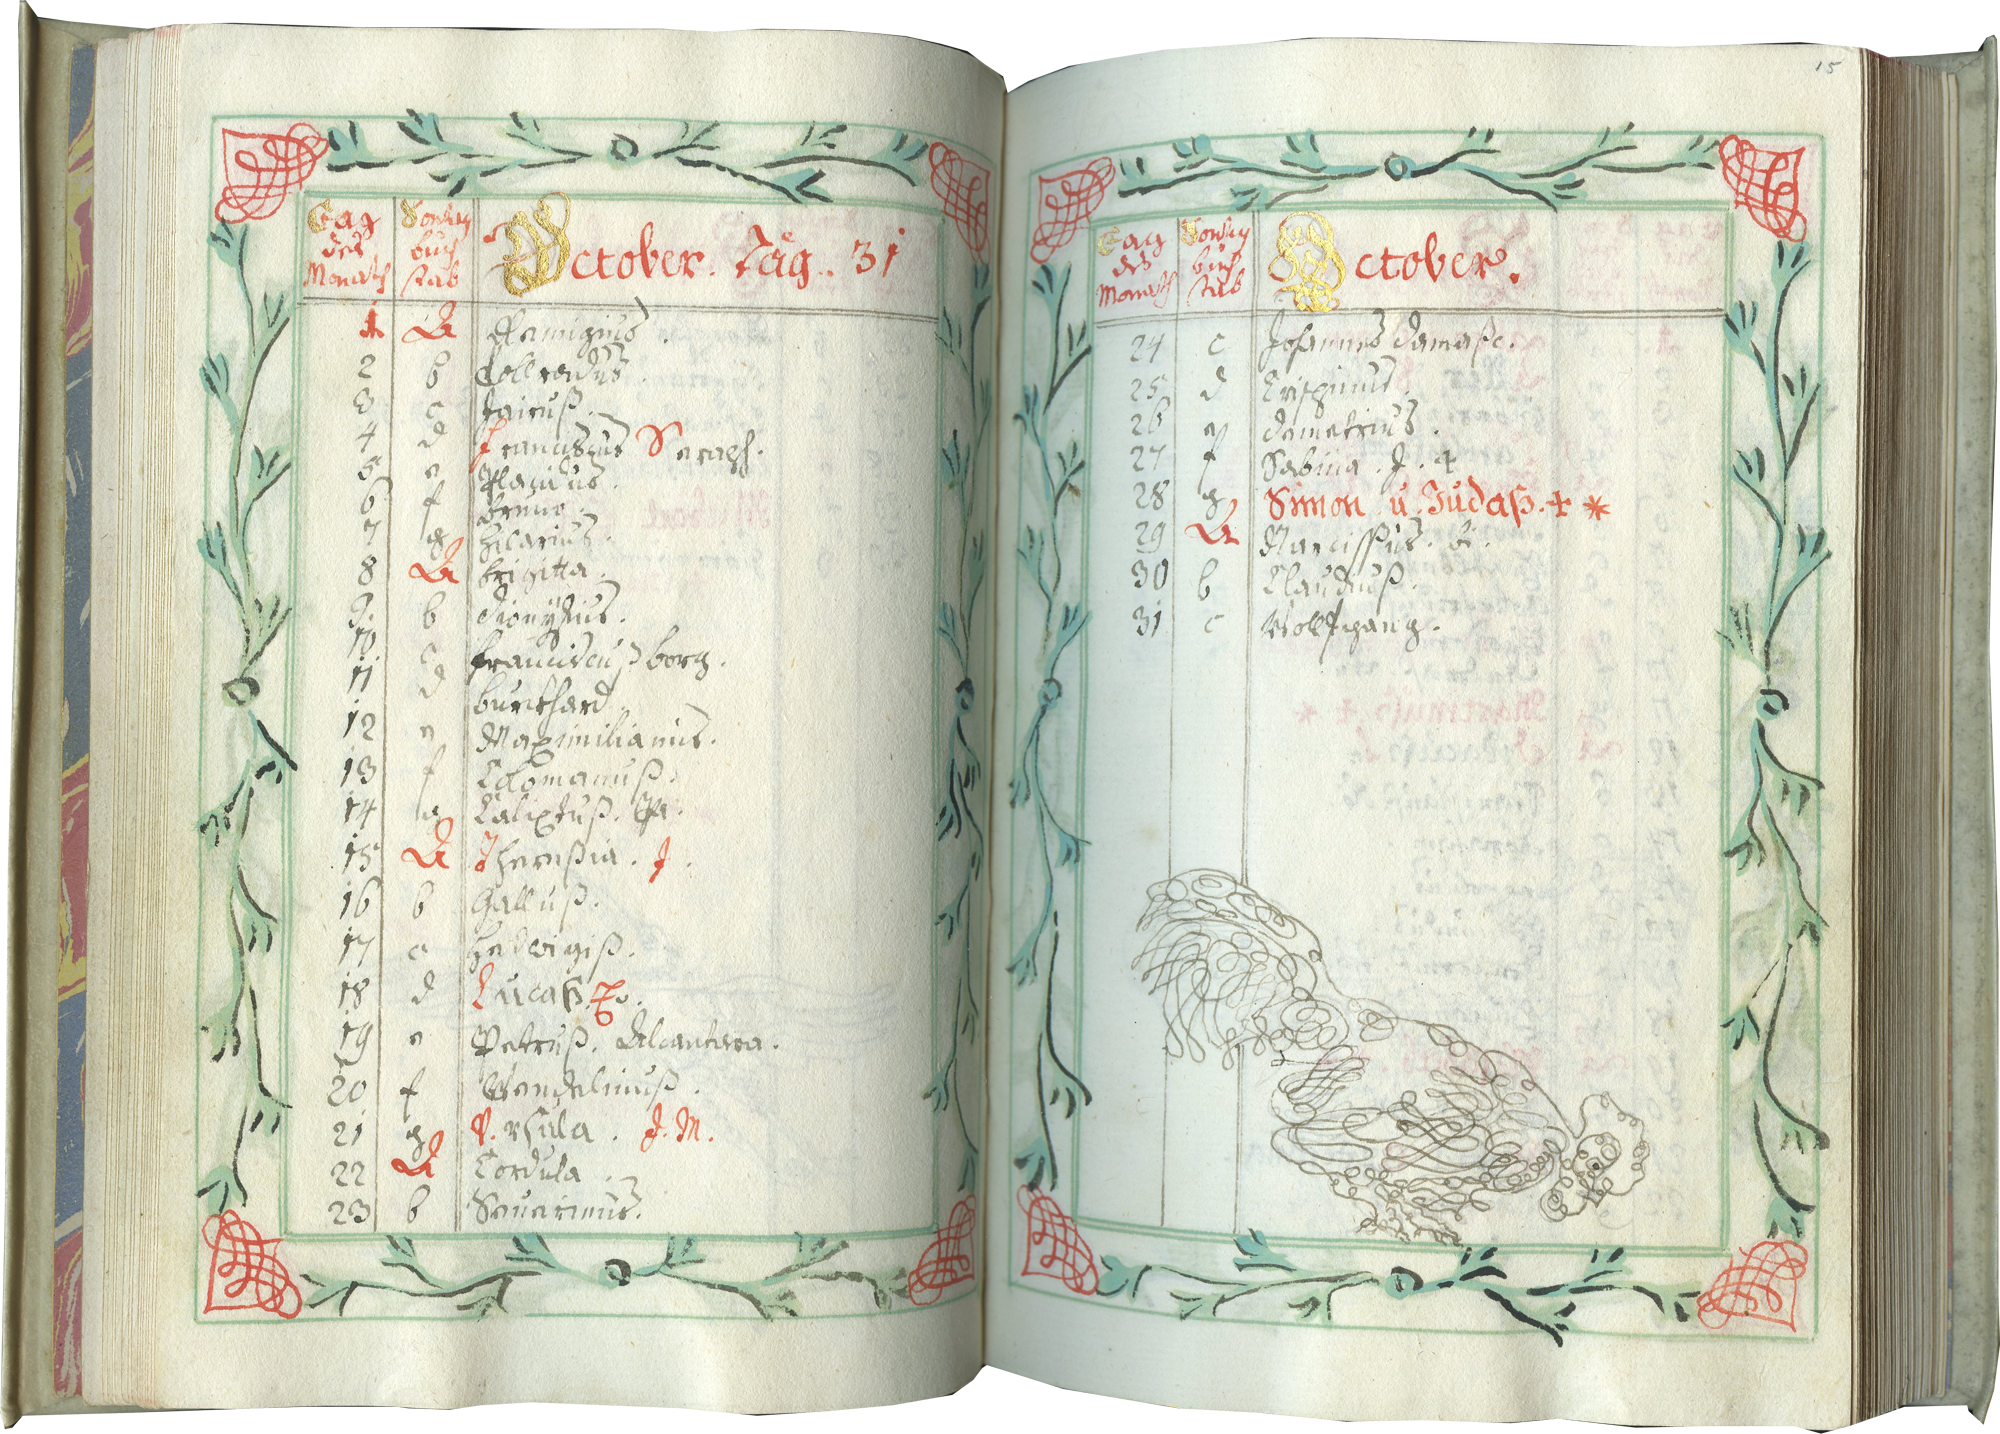 Tag des Monaths
Sontag buch stab
October. Täg. 31
1 A Remigius.
2 b
3 c Jairuß.
4 d Franciscus Seraph.
5 e Placidus.
6 f Bruno.
7 g Hilarius.
8 A brigitta.
9. b dionÿsius.
10. c franciscuß borg.
11 d burckhard.
12 e Maximilianus.
13 f Colomanuß.
14 g Calixtuß. Pa.
15 A Theresia. J.
16 b Galluß.
17 c Hedwigiß.
18 d Lucaß.
19 e Petruß. Alcantara.
20 f Wendelinuß.
21 g V. rsula. J. M.
22 A Cordula.
23 b Seuerinus.
15
Tag des Monaths
Sontag buch stab
October.
24 c Johannes damasc.
25 d Crispinus.
26 e demetrius.
27 f Sabina. J. 4
28 g Simon u. Judaß. + *
29 A Narcissus. b.
30 b Claudiuß.
31 c Wolfgang.